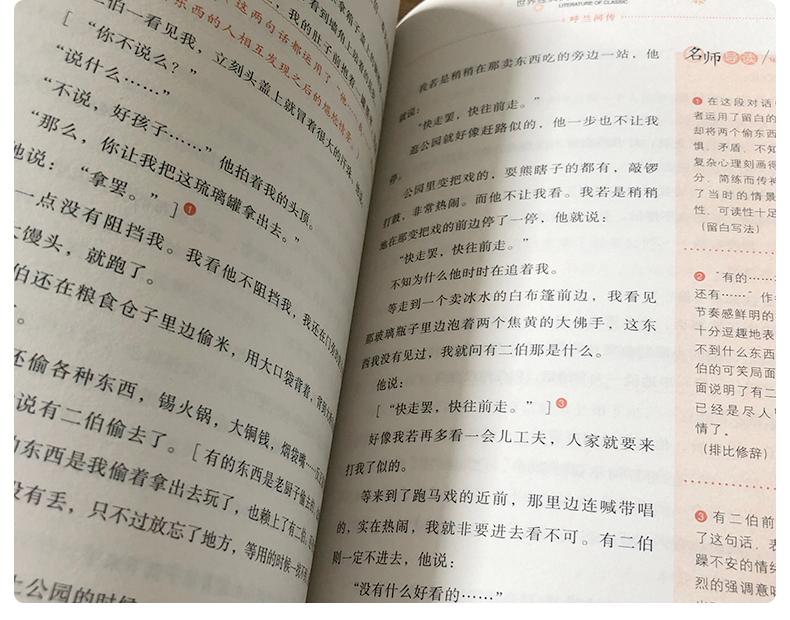 伯一看见我，立刻头盖上就冒着很大的汗珠
[“你不说么？”
“说什么……”
“不说，好孩子……”他拍着我的头顶。
“那么，你让我把这琉璃罐拿出去。”
他说：“拿罢。”]❶
一点没有阻挡我。我看他不阻挡我，我还在门
大馒头，就跑了。
伯还在粮食仓子里边偷米，用大口袋背着，背到
还偷各种东西，锡火锅，大铜钱，烟袋嘴……
说有二伯偷去了。[有的东西是老厨子偷去
的东西是我偷着拿出去玩了，也赖上了有二伯。
没有丢，只不过放忘了地方，等用的时候一找
上公园的时候
世界经典
LITERATURE OF CLASSIC
呼兰河传
我若是稍稍在那卖东西吃的旁边一站，他
就说：
“快走罢，快往前走。”
逛公园就好像赶路似的，他一步也不让我
停。
公园里变把戏的，耍熊瞎子的都有，敲锣
打鼓，非常热闹。而他不让我看。我若是稍稍
地在那变把戏的前边停了一停，他就说：
“快走罢，快往前走。”
不知为什么他时时在追着我。
等走到一个卖冰水的白布篷前边，我看见
那玻璃瓶子里边泡着两个焦黄的大佛手，这东
西我没有见过，我就问有二伯那是什么。
他说：
[“快走罢，快往前走。”]❸
好像我若再多看一会儿工夫，人家就要来
打我了似的。
等来到了跑马戏的近前，那里边连喊带唱
的，实在热闹，我就非要进去看不可。有二伯
则一定不进去，他说：
“没有什么好看的……”
名师导读
❶ 在这段对话
者运用了留白的
却将两个偷东西
惧、矛盾、不知
复杂心理刻画得
分、简练而传神
了当时的情景
性、可读性十足
（留白写法）
❷ “有的……
还有……”作
节奏感鲜明的
十分逗趣地表
不到什么东西
伯的可笑局面
面说明了有二
已经是尽人
情了。
（排比修辞）
❸ 有二伯前
了这句话，表
躁不安的情
烈的强调意